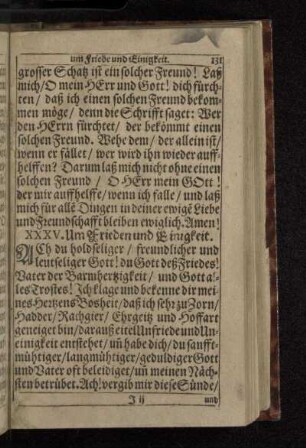 um Friede und Einigkeit. 131
grosser Schatz ist ein solcher Freund! Laß
mich/ O mein HErr und Gott! dich fürch-
ten/ daß ich einen solchen Freund bekom-
men möge/ denn die Schrifft saget: Wer
den HErrn fürchtet/ der bekömmt einen
solchen Freund. Wehe dem/ der allein ist/
wenn er fället/ wer wird ihn wieder auff-
helffen? Darum laß mich nicht ohne einen
solchen Freund/ O HErr mein GOtt!
der mir auffhelffe/ wenn ich falle/ und laß
mich für allē Dingen in deiner ewigē Liebe
und Freundschafft bleiben ewiglich. Amen!
XXXV. Um Frieden und Einigkeit.
ACh du holdseliger/ freundlicher und
leutseliger Gott! du Gott deß Friedes!
Vater der Barmhertzigkeit/ und Gott al-
les Trostes! Ich klage und bekenne dir mei-
nes Hertzens Bosheit/ daß ich sehr zu Zorn/
Hadder/ Rachgier/ Ehrgeitz und Hoffart
geneiget bin/ darauß eitel Unfriede und Un-
einigkeit entstehet/ uñ habe dich/ du sanfft-
mühtiger/ langmühtiger/ geduldiger Gott
und Vater oft beleidiget/ uñ meinen Näch-
sten betrübet. Ach! vergib mir diese Sünde/
J ij und